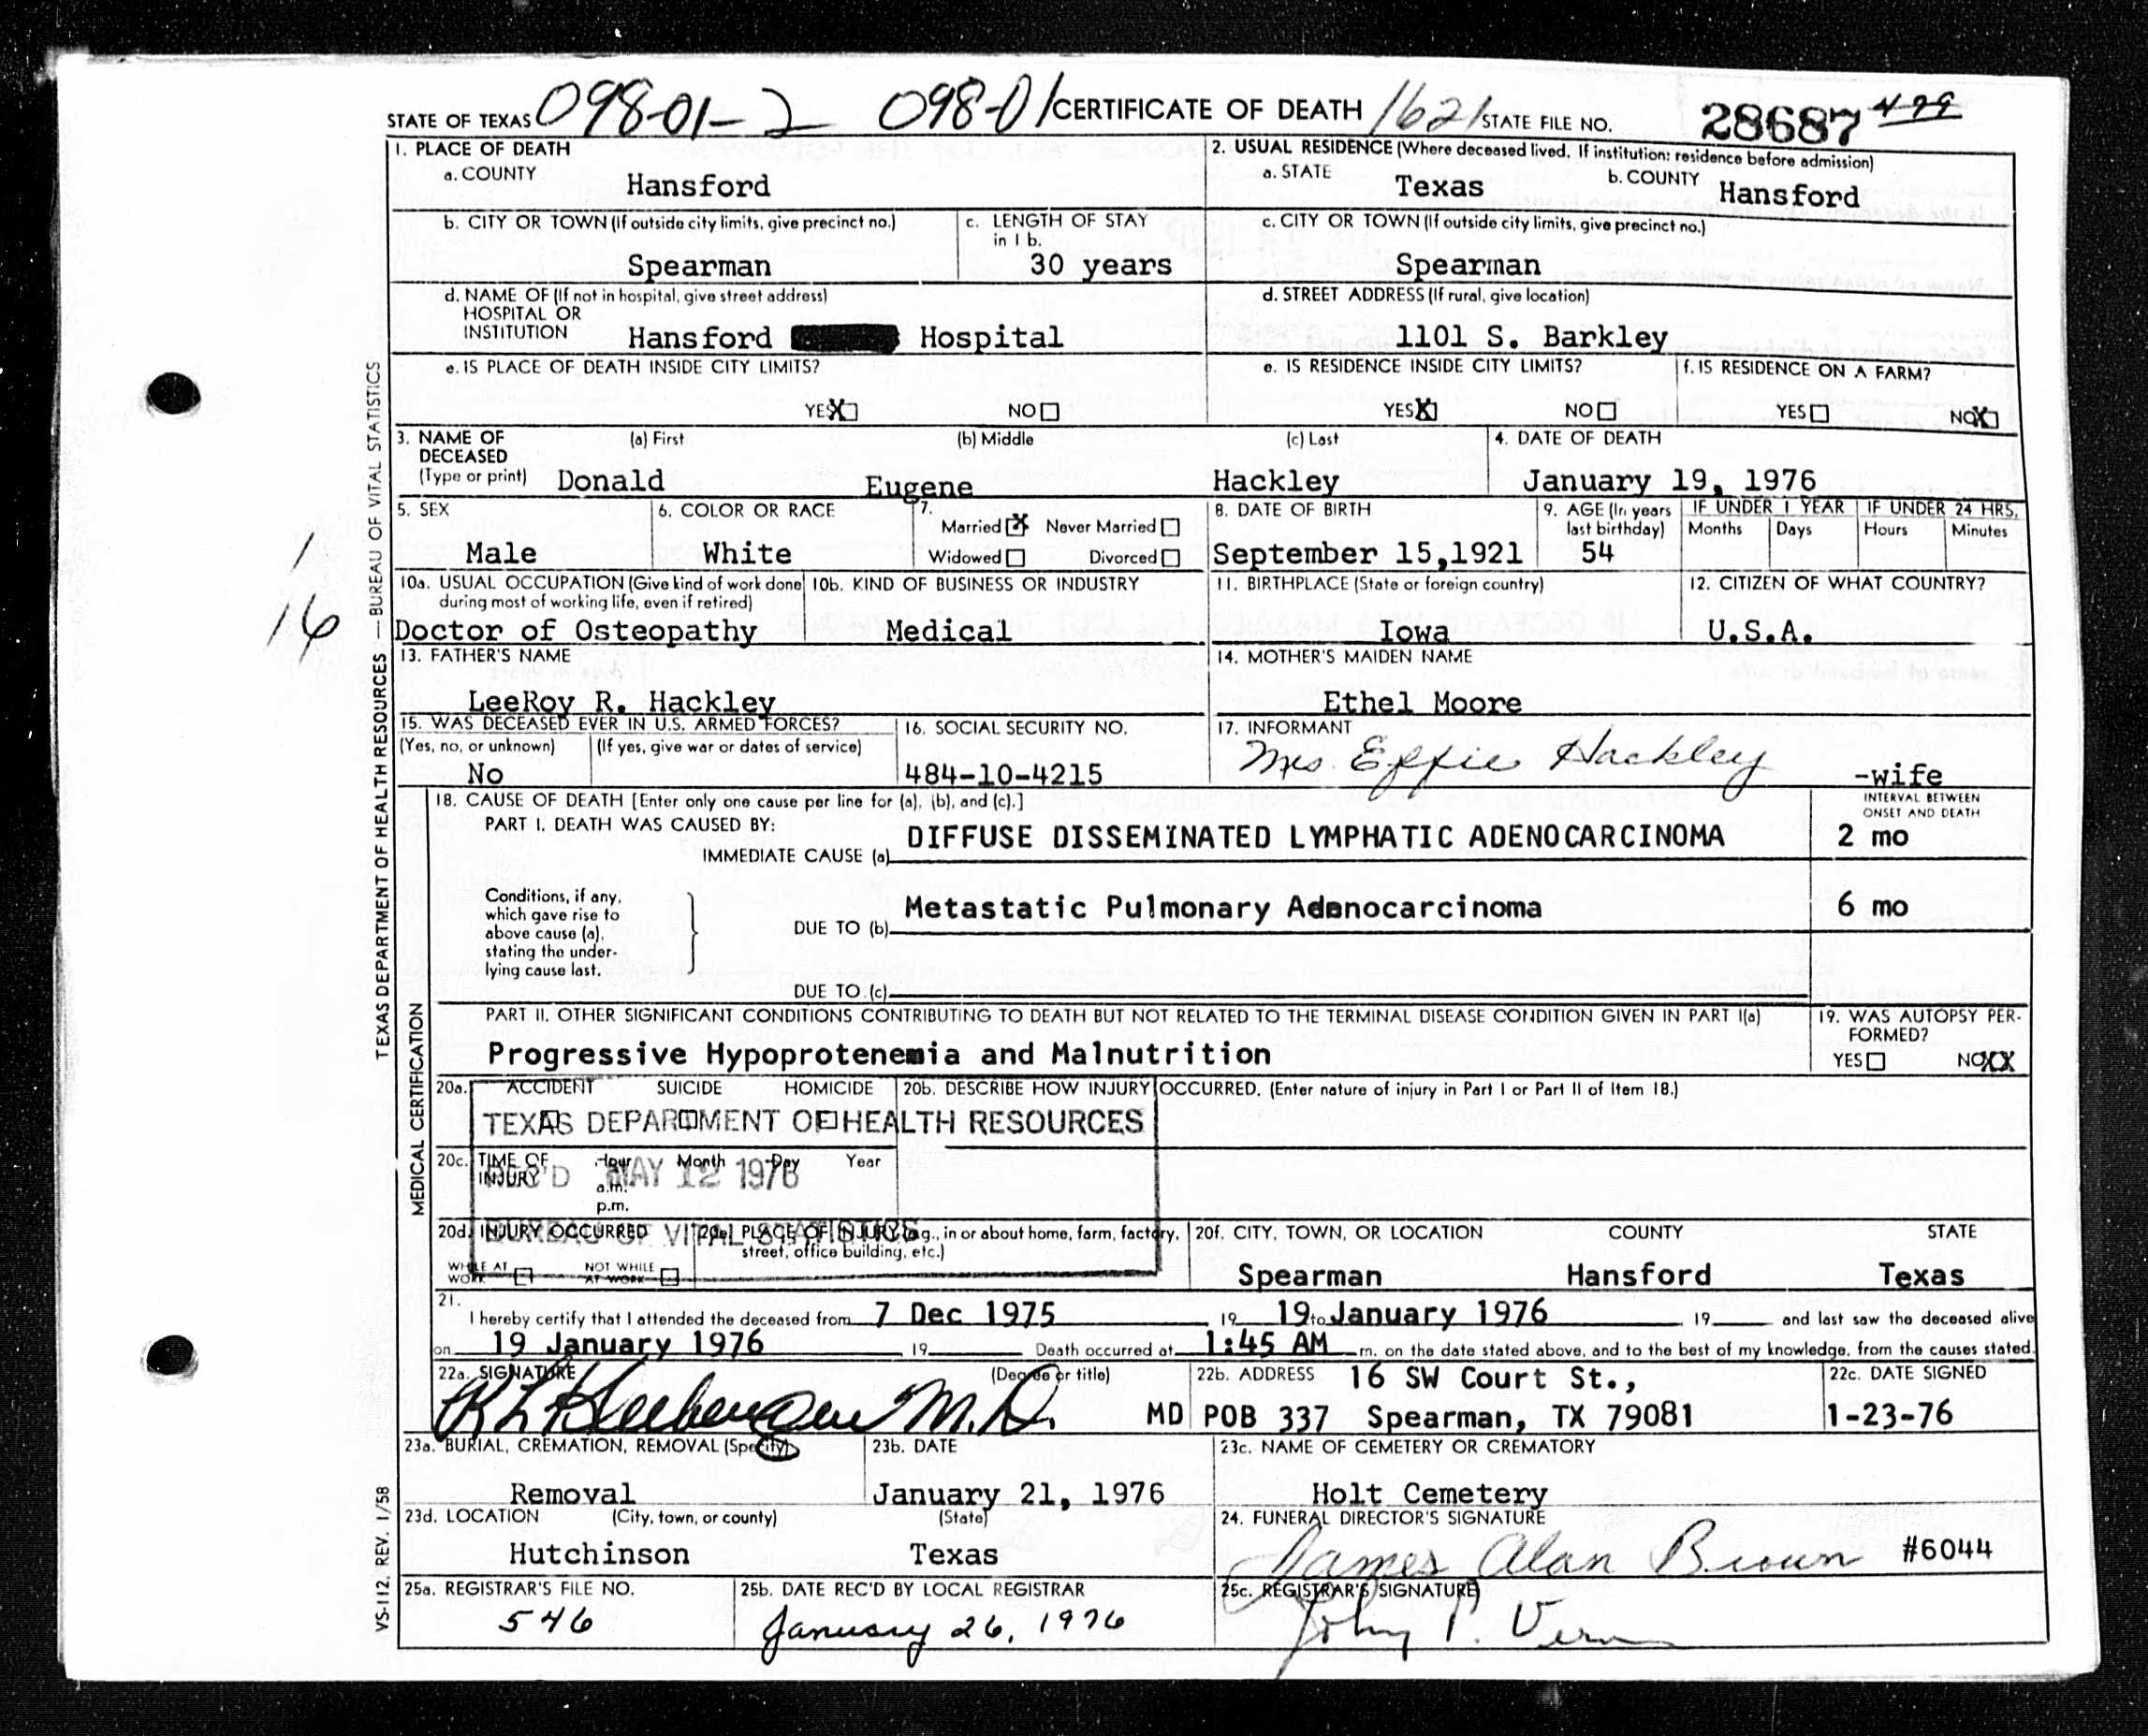 STATE OF TEXAS 098-01-2 098-01 CERTIFICATE OF DEATH 1621 STATE FILE NO. 28687 499
1. PLACE OF DEATH
a. COUNTY Hansford
2. USUAL RESIDENCE (Where deceased lived. If institution: residence before admission)
a. STATE Texas b. COUNTY Hansford
b. CITY OR TOWN (If outside city limits, give precinct no.) Spearman
c. LENGTH OF STAY in 1 b. 30 years
c. CITY OR TOWN (If outside city limits, give precinct no.) Spearman
d. NAME OF (If not in hospital, give street address)
HOSPITAL OR
INSTITUTION Hansford Hospital
d. STREET ADDRESS (If rural, give location)
1101 S. Barkley
e. IS PLACE OF DEATH INSIDE CITY LIMITS?
YES X NO
e. IS RESIDENCE INSIDE CITY LIMITS?
YES X NO
f. IS RESIDENCE ON A FARM?
YES NO X
3. NAME OF DECEASED (Type or print)
(a) First (b) Middle (c) Last
Donald Eugene Hackley
4. DATE OF DEATH
January 19, 1976
5. SEX
Male
6. COLOR OR RACE
White
7.
Married X Never Married
Widowed Divorced
8. DATE OF BIRTH
September 15,1921
9. AGE (In years last birthday)
54
IF UNDER 1 YEAR IF UNDER 24 HRS.
Months Days Hours Minutes
10a. USUAL OCCUPATION (Give kind of work done
during most of working life, even if retired)
Doctor of Osteopathy
10b. KIND OF BUSINESS OR INDUSTRY
Medical
11. BIRTHPLACE (State or foreign country)
Iowa
12. CITIZEN OF WHAT COUNTRY?
U.S.A.
13. FATHER'S NAME
LeeRoy R. Hackley
14. MOTHER'S MAIDEN NAME
Ethel Moore
15. WAS DECEASED EVER IN U.S. ARMED FORCES?
(Yes, no, or unknown) (If yes, give war or dates of service)
No
16. SOCIAL SECURITY NO.
484-10-4215
17. INFORMANT
Mrs. Effie Hackley -wife
18. CAUSE OF DEATH [Enter only one cause per line for (a), (b), and (c).]
INTERVAL BETWEEN
ONSET AND DEATH
PART I. DEATH WAS CAUSED BY:
IMMEDIATE CAUSE (a) DIFFUSE DISSEMINATED LYMPHATIC ADENOCARCINOMA 2 mo
Conditions, if any,
which gave rise to
above cause (a),
stating the under-
lying cause last.
DUE TO (b) Metastatic Pulmonary Adenocarcinoma 6 mo
DUE TO (c)
PART II. OTHER SIGNIFICANT CONDITIONS CONTRIBUTING TO DEATH BUT NOT RELATED TO THE TERMINAL DISEASE CONDITION GIVEN IN PART I(a)
Progressive Hypoprotenemia and Malnutrition
19. WAS AUTOPSY PER-
FORMED?
YES NO XX
20a. ACCIDENT SUICIDE HOMICIDE
20b. DESCRIBE HOW INJURY OCCURRED. (Enter nature of injury in Part I or Part II of Item 18.)
TEXAS DEPARTMENT OF HEALTH RESOURCES
20c. TIME OF INJURY Hour Month Day Year
a.m.
p.m.
REC'D MAY 12 1976
BUREAU OF VITAL STATISTICS
20d. INJURY OCCURRED
WHILE AT WORK NOT WHILE AT WORK
20e. PLACE OF INJURY (e.g., in or about home, farm, factory,
street, office building, etc.)
20f. CITY, TOWN, OR LOCATION COUNTY STATE
Spearman Hansford Texas
21.
I hereby certify that I attended the deceased from 7 Dec 1975 , 19 to 19 January 1976 , 19 and last saw the deceased alive
on 19 January 1976 , 19 Death occurred at 1:45 AM m. on the date stated above, and to the best of my knowledge, from the causes stated.
22a. SIGNATURE (Degree or title)
M.D. MD
22b. ADDRESS 16 SW Court St.,
POB 337 Spearman, TX 79081
22c. DATE SIGNED
1-23-76
23a. BURIAL, CREMATION, REMOVAL (Specify)
Removal
23b. DATE
January 21, 1976
23c. NAME OF CEMETERY OR CREMATORY
Holt Cemetery
23d. LOCATION (City, town, or county) (State)
Hutchinson Texas
24. FUNERAL DIRECTOR'S SIGNATURE
James Alan Brown #6044
25a. REGISTRAR'S FILE NO.
546
25b. DATE REC'D BY LOCAL REGISTRAR
January 26, 1976
25c. REGISTRAR'S SIGNATURE
1
16
TEXAS DEPARTMENT OF HEALTH RESOURCES — BUREAU OF VITAL STATISTICS
MEDICAL CERTIFICATION
VS-112, REV. 1/58